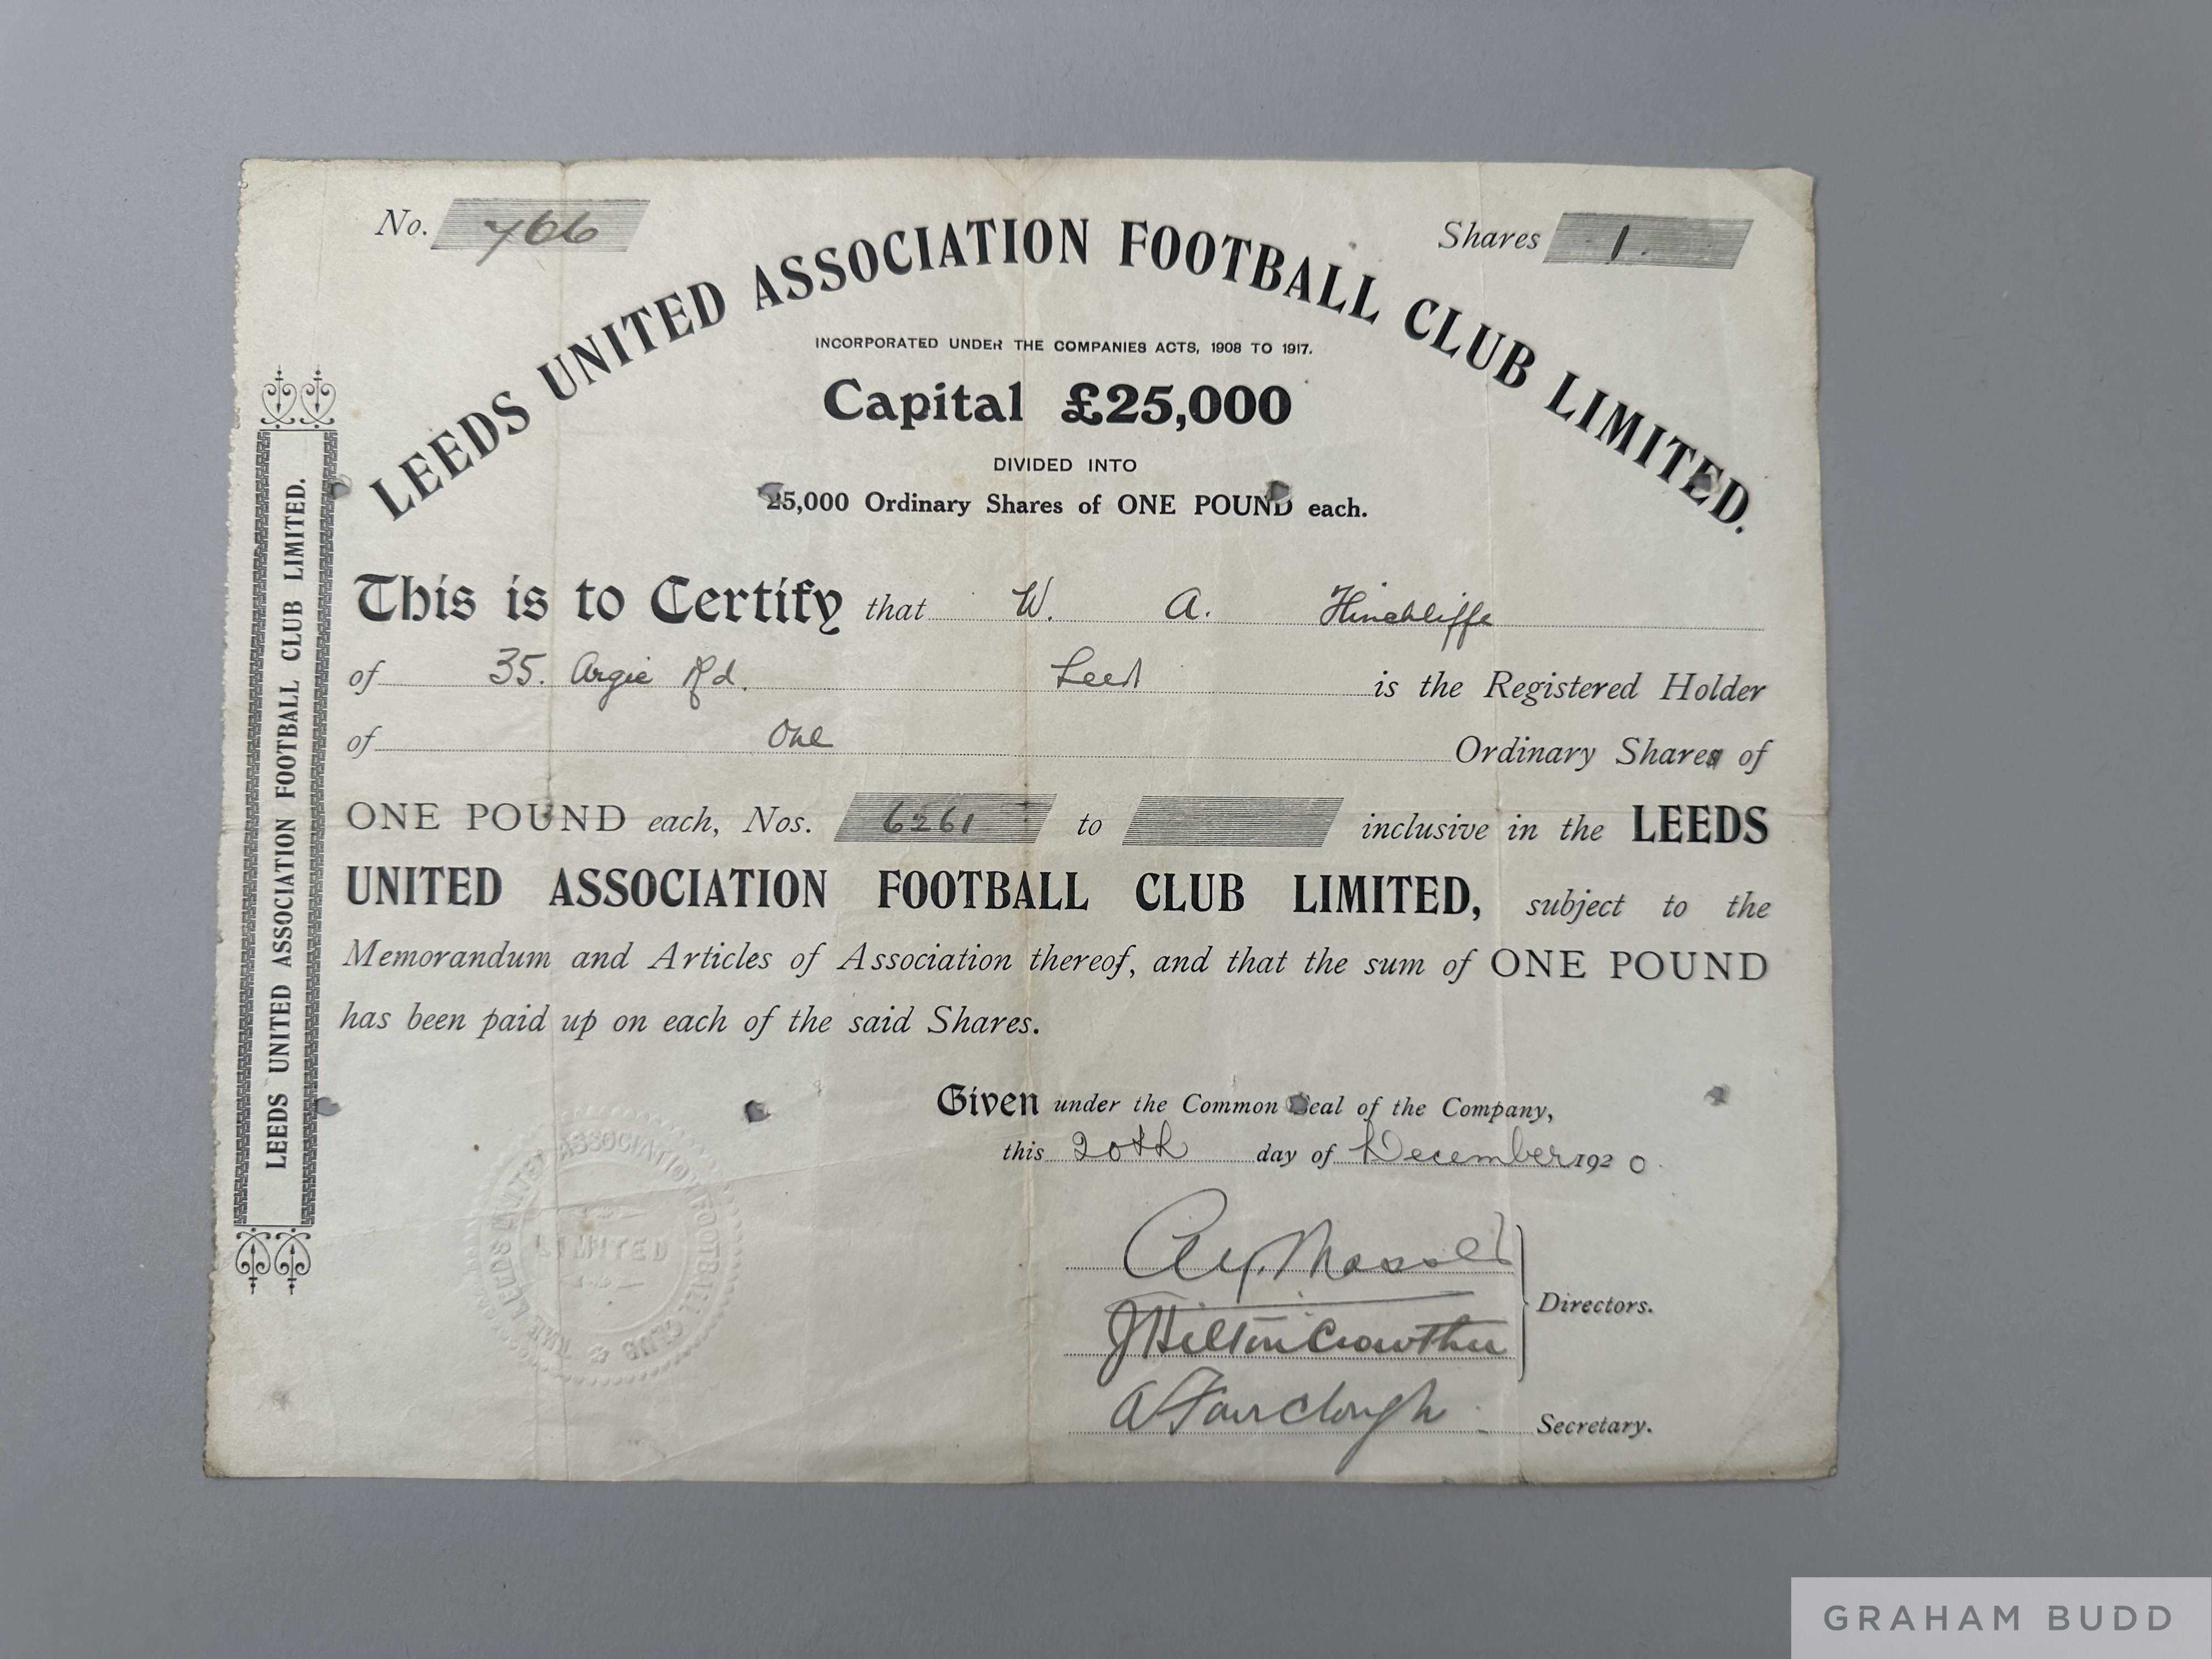 No. 766
Shares 1.
LEEDS UNITED ASSOCIATION FOOTBALL CLUB LIMITED.
INCORPORATED UNDER THE COMPANIES ACTS, 1908 TO 1917.
Capital £25,000
DIVIDED INTO
25,000 Ordinary Shares of ONE POUND each.
This is to Certify that W. A. Hinchliffe
of 35. Argie Rd. Leeds is the Registered Holder
of One Ordinary Shares of
ONE POUND each, Nos. 6261 to inclusive in the LEEDS
UNITED ASSOCIATION FOOTBALL CLUB LIMITED, subject to the
Memorandum and Articles of Association thereof, and that the sum of ONE POUND
has been paid up on each of the said Shares.
Given under the Common Seal of the Company,
this 20th day of December 1920.
Alf. Masser
J Hilton Crowther
Directors.
A Fairclough
Secretary.
LEEDS UNITED ASSOCIATION FOOTBALL CLUB LIMITED.
THE LEEDS UNITED ASSOCIATION FOOTBALL CLUB
LIMITED
GRAHAM BUDD